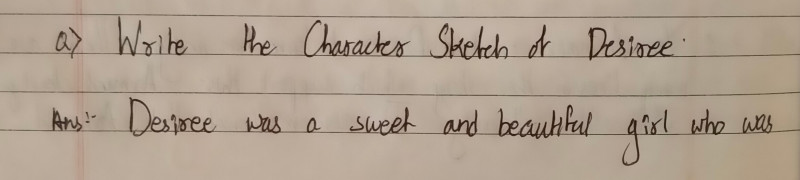 a) Write the Character Sketch of Desiree.
Ans:- Desiree was a sweet and beautiful girl who was